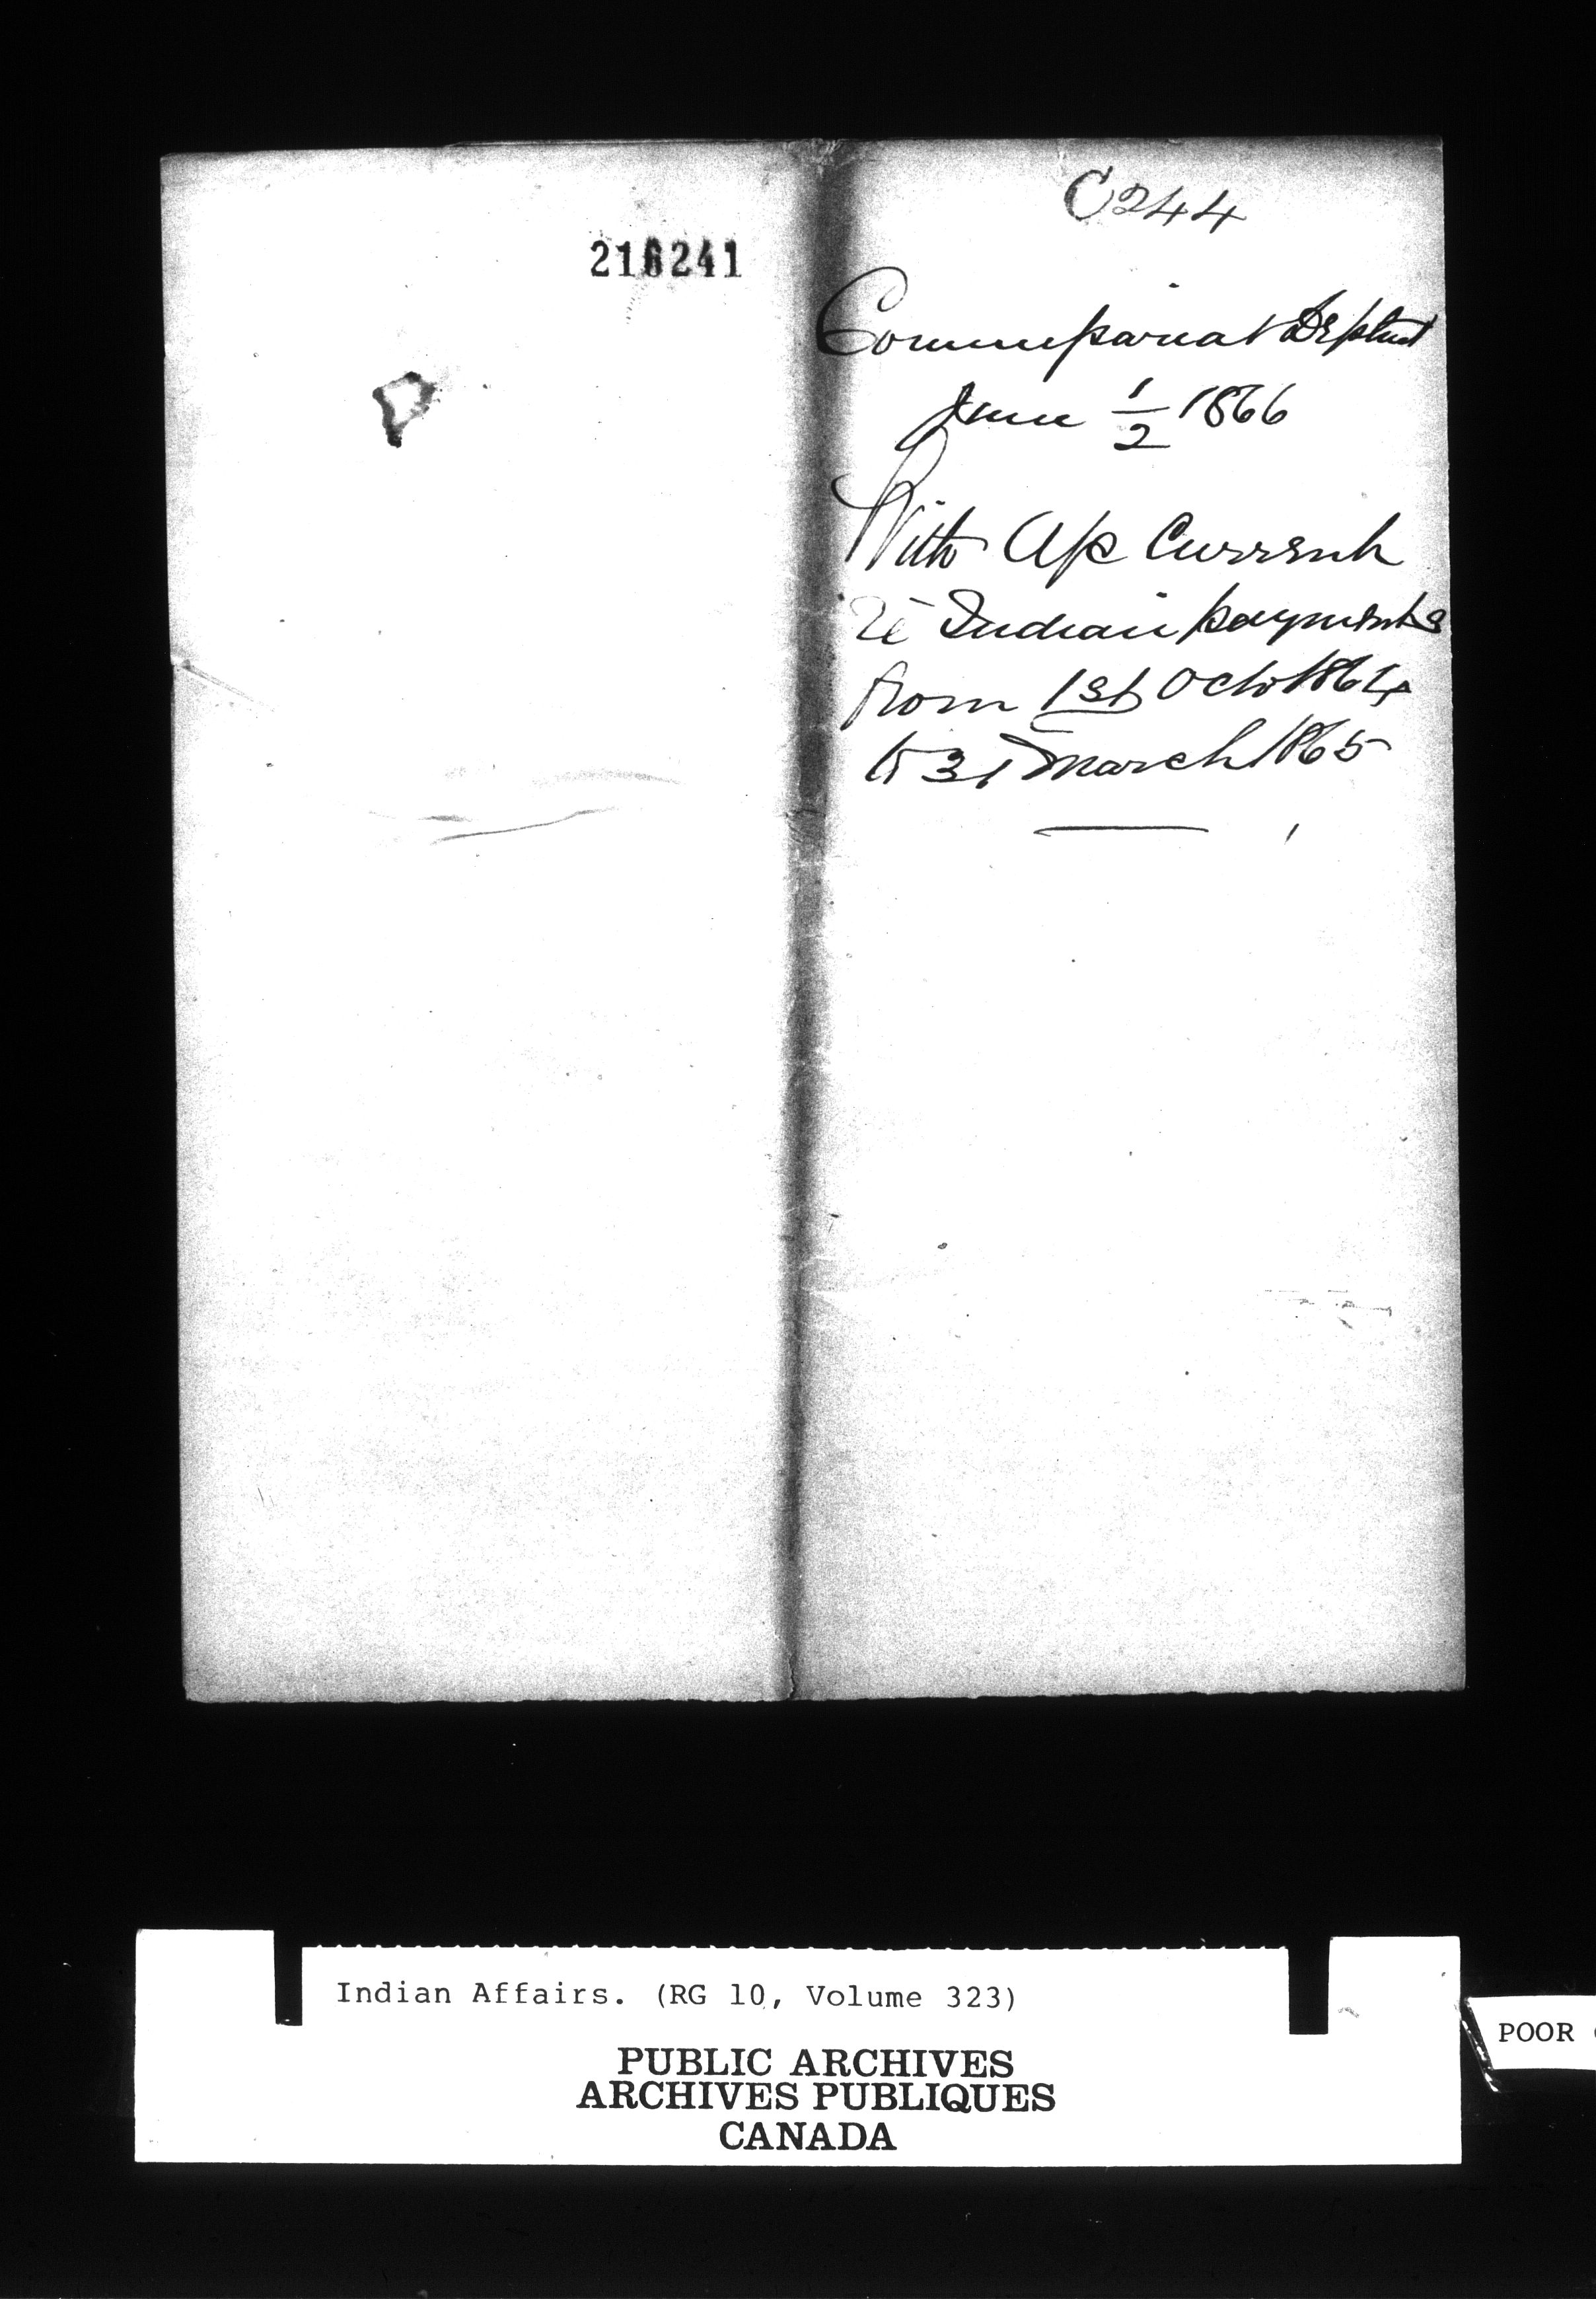 216241
C244
Commissariat Deptmt
June 1/2 1866
With A/c Current
re Indian payments
from 1st Octo 1864
to 31 March 1865
Indian Affairs. (RG 10, Volume 323)
PUBLIC ARCHIVES
ARCHIVES PUBLIQUES
CANADA
POOR